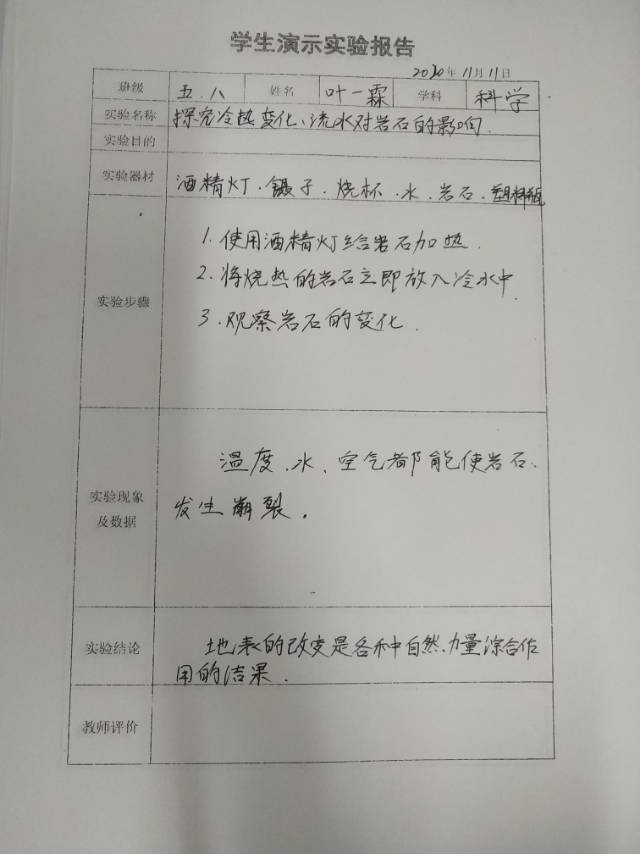 学生演示实验报告
2020年11月11日
班级 五.八 姓名 叶一霖 学科 科学
实验名称 探究冷热变化、流水对岩石的影响.
实验目的
实验器材 酒精灯.镊子.烧杯.水.岩石.塑料瓶
1.使用酒精灯给岩石加热.
2.将烧热的岩石立即放入冷水中
实验步骤
3.观察岩石的变化.
温度.水、空气都能使岩石
实验现象
及数据
发生崩裂.
实验结论 地表的改变是各种自然力量综合作
用的结果.
教师评价